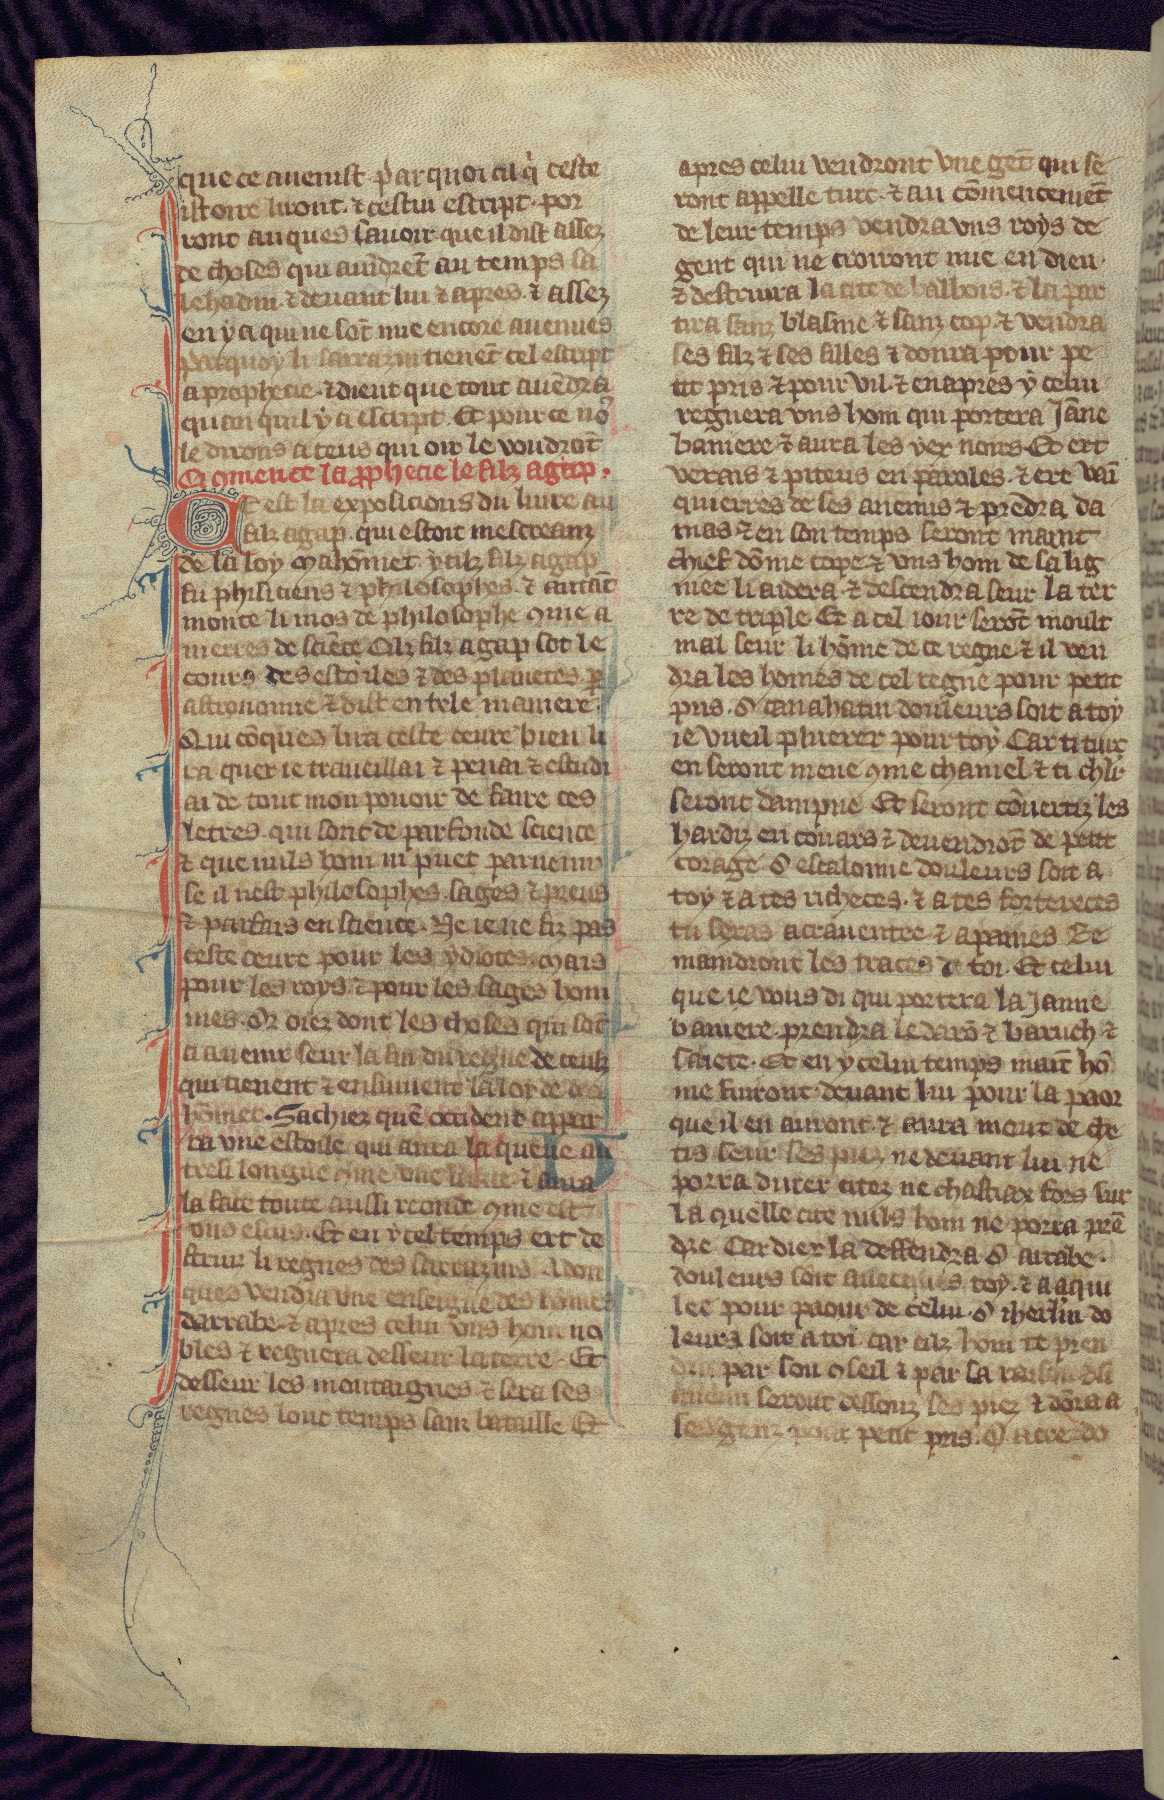 que ce auenist Par quoi cil q̇ ceste
istoire liront. ⁊ cestui escript. por
ront auques sauoir que il dist assez
de choses qui auindrēt au temps sa
lehadin ⁊ deuant lui ⁊ apres. ⁊ assez
en y a qui ne sōt mie encore auenues
Par quoy li sarrazin tienēt cel escript
a prophecie. ⁊ dient que tout auēdra
quan quil y a escript. Et pour ce nō
le dirons a teus qui oir le voudrōt
Ci ꝯmence la ꝓphecie le filz agap.
Cest la exposicions du liure au
filz agap. qui estoit mescreanz
de la loy mahōmet. ycilz filz agap
fu phisiciens ⁊ philosophes. ⁊ autāt
monte li mos de philosophe ꝯme a
mierres de sciēce Cilz filz agap sot le
cours des estoiles ⁊ des planetes. ꝑ
astronomie ⁊ dist en tele maniere.
Qui cōques lira ceste oeure bien li
ra quer ie trauueillai ⁊ penai ⁊ estudi
ai de tout mon pouoir de faire ces
letres. qui sont de parfonde science
⁊ que nuls hom ni puet paruenir
se il nest philosophes. sages ⁊ preus
⁊ parfais en science. Ne ie ne fiz pas
ceste oeure pour les ydiotes. mais
pour les roys. ⁊ pour les sages hom
mes. Or oiez dont les choses qui sōt
a auenir seur la fin du regne de ceulz
qui tienent ⁊ ensuiuent la loy de
hōmet. Sachiez quē occident appar
ra vne estoile qui aura la queue au
tresi longue ꝯme vne lance ⁊ aura
la face toute aussi reonde ꝯme est
vns escus. Et en ycel temps ert de
struir li regnes des sarrazins. Adon
ques vendra vne enseigne des homes
darrabe. ⁊ apres celui vns hom no
bles ⁊ regnera desseur la terre. Et
desseur les montaignes ⁊ sera ses
regnes lonc temps sanz bataille Et
apres celui vendront vne gēt qui se
ront appelle turc. ⁊ au cōmencemēt
de leur temps vendra vns roys de
gent qui ne croiront mie en dieu.
⁊ destruira la cite de balbois. ⁊ la par
tira sanz blasme ⁊ sanz cop. ⁊ vendra
ses filz ⁊ ses filles ⁊ donra pour pe
tit pris ⁊ pour vil. ⁊ en apres ycelui
regnera vns hom qui portera jāne
baniere ⁊ aura les yex noirs. Et ert
verais ⁊ piteus en paroles. ⁊ ert vaī
quierres de ses anemis ⁊ prēdra da
mas ⁊ en son temps seront maint
chief dōme cope ⁊ vns hom de sa lig
niee li aidera. ⁊ descendra seur la ter
re de triple Et a cel iour serōt moult
mal seur li hōme de ce regne ⁊ il ven
dra les homes de cel regne pour petit
pris. O canahatin douleurs soit a toy
ie vueil plueerer pour toy Car ti turc
en seront mene ꝯme chamel ⁊ ti chlr̄
seront dampne Et seront cōuertiz les
hardiz en couars ⁊ deuendrōt de petit
corage O escalonne douleurs soit a
toy ⁊ a tes richeces. ⁊ a tes forteresces
tu seras acrauentee ⁊ a paines Re
maindront les traces de toi. Et celui
que ie vous di qui portera la janne
baniere prendra le darō ⁊ baruch ⁊
saiete. Et en ycelui temps maīt hō
me fuiront deuant lui pour la paor
que il en auront. ⁊ aura mout de che
tis seur ses piez ne deuant lui ne
porra durer citez ne chastiax fors sur
la quelle cite nuls hom ne porra prē
dre Car dier la deffendra O arrabe.
douleurs soit auecques toy. ⁊ a aqui
lee pour paour de celui. O iherlm̄ do
leurs soit a toi. car cilz hom te pren
dra par son ꝯseil ⁊ par sa raison
seront dessouz ses piez ⁊ dōra a
ses genz pour petit pris. O acre do